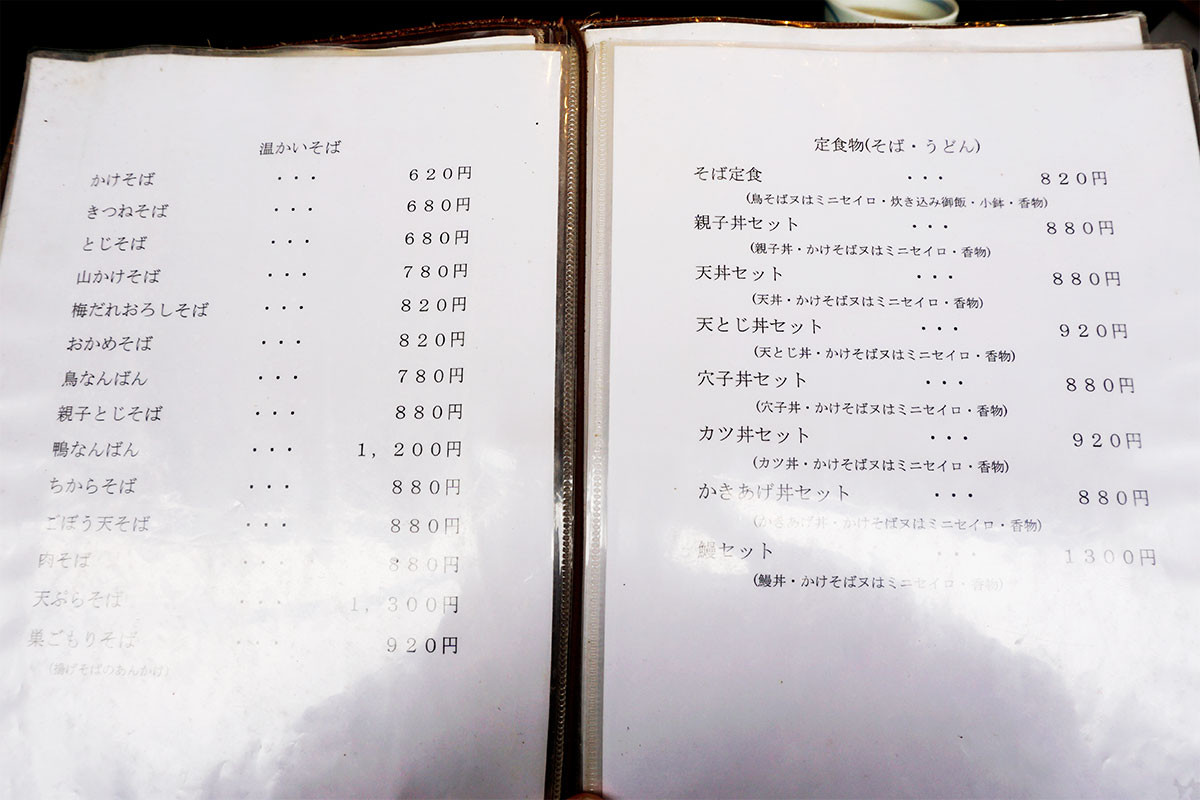 温かいそば
かけそば ・・・ 620円
きつねそば ・・・ 680円
とじそば ・・・ 680円
山かけそば ・・・ 780円
梅だれおろしそば ・・・ 820円
おかめそば ・・・ 820円
鳥なんばん ・・・ 780円
親子とじそば ・・・ 880円
鴨なんばん ・・・ 1,200円
ちからそば ・・・ 880円
ごぼう天そば ・・・ 880円
肉そば ・・・ 880円
天ぷらそば ・・・ 1,300円
巣ごもりそば ・・・ 920円
(揚げそばのあんかけ)
定食物(そば・うどん)
そば定食 ・・・ 820円
(鳥そば又はミニセイロ・炊き込み御飯・小鉢・香物)
親子丼セット ・・・ 880円
(親子丼・かけそば又はミニセイロ・香物)
天丼セット ・・・ 880円
(天丼・かけそば又はミニセイロ・香物)
天とじ丼セット ・・・ 920円
(天とじ丼・かけそば又はミニセイロ・香物)
穴子丼セット ・・・ 880円
(穴子丼・かけそば又はミニセイロ・香物)
カツ丼セット ・・・ 920円
(カツ丼・かけそば又はミニセイロ・香物)
かきあげ丼セット ・・・ 880円
(かきあげ丼・かけそば又はミニセイロ・香物)
鰻セット ・・・ 1300円
(鰻丼・かけそば又はミニセイロ・香物)